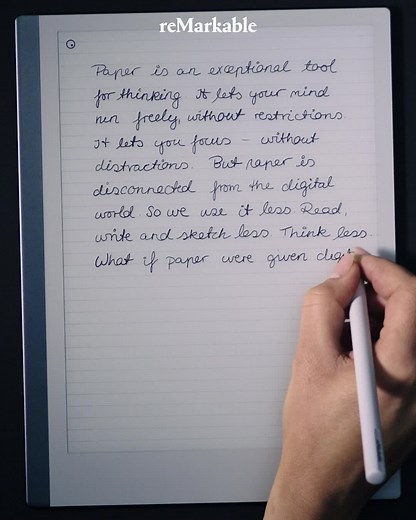 reMarkable
Paper is an exceptional tool
for thinking It lets your mind
run freely, without restrictions.
It lets you focus – without
distractions. But paper is
disconnected from the digital
world. So we use it less. Read,
write and sketch less. Think less.
What if paper were given